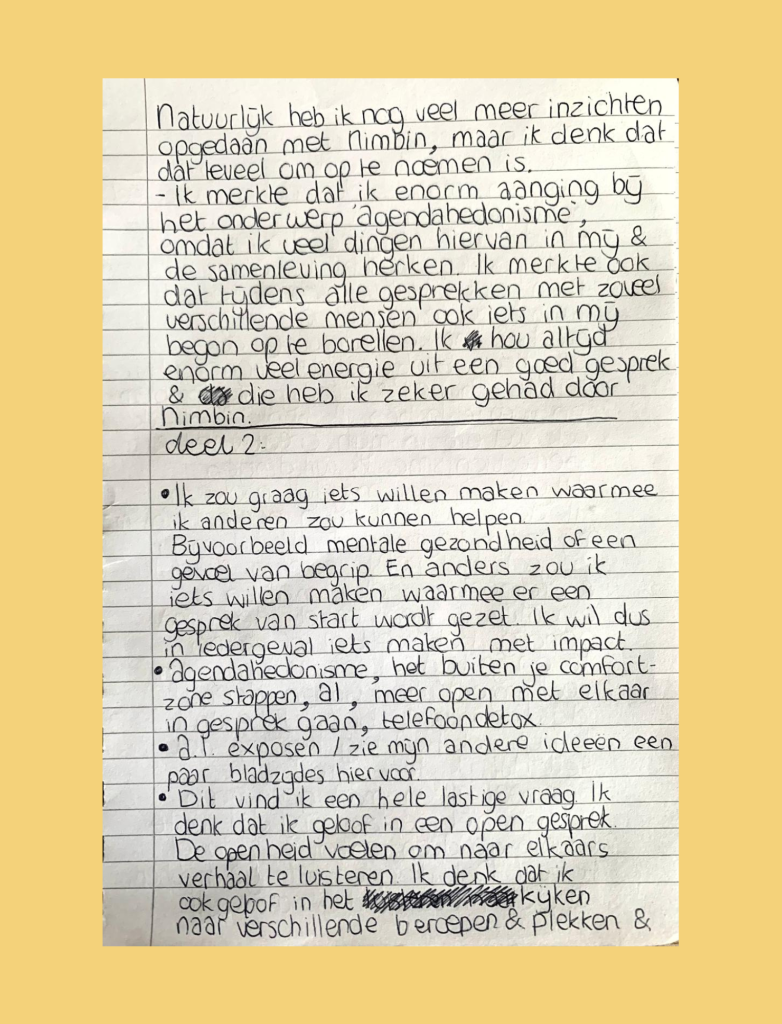 Natuurlijk heb ik nog veel meer inzichten
opgedaan met Nimbin, maar ik denk dat
dat teveel om op te noemen is.
- Ik merkte dat ik enorm aanging bij
het onderwerp 'agendahedonisme',
omdat ik veel dingen hiervan in mij &
de samenleving herken. Ik merkte ook
dat tijdens alle gesprekken met zoveel
verschillende mensen ook iets in mij
begon op te borellen. Ik hou altijd
enorm veel energie uit een goed gesprek
& die heb ik zeker gehad door
Nimbin.
deel 2:
• Ik zou graag iets willen maken waarmee
ik anderen zou kunnen helpen.
Bijvoorbeeld mentale gezondheid of een
gevoel van begrip. En anders zou ik
iets willen maken waarmee er een
gesprek van start wordt gezet. Ik wil dus
in iedergeval iets maken met impact.
• agendahedonisme, het buiten je comfort-
zone stappen, al, meer open met elkaar
in gesprek gaan, telefoondetox.
• a.i. exposen / zie mijn andere ideeën een
paar bladzijdes hiervoor.
• Dit vind ik een hele lastige vraag. Ik
denk dat ik geloof in een open gesprek.
De openheid voelen om naar elkaars
verhaal te luisteren. Ik denk dat ik
ook geloof in het kijken
naar verschillende beroepen & plekken &